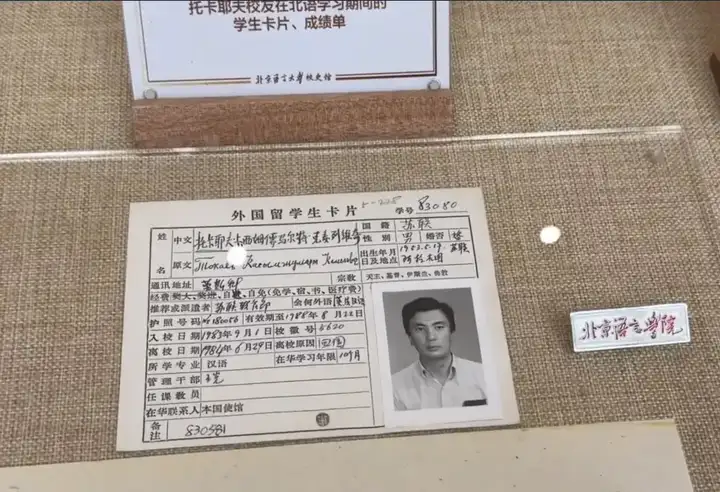 托卡耶夫校友在北语学习期间的
学生卡片、成绩单
北京语言大学校史馆
外国留学生卡片
学号 83080
姓名 中文 托卡耶夫卡西姆
国籍 苏联
性别 男 婚否
原文
出生年月日及地点 1953.5.17. 苏联
通讯地址 莫斯科 宗教 天主、基督、伊斯兰、佛教
推荐或派遣者 苏联 会何外语
护照号码 № 180056 有效期至1988年8月22日
入校日期 1983年9月1日 校徽号 6620
离校日期 1984年6月29日 离校原因 回国
所学专业 汉语 在华学习年限 10个月
管理干部
任课教员
在华联系人 本国使馆
备注 830581
北京语言学院